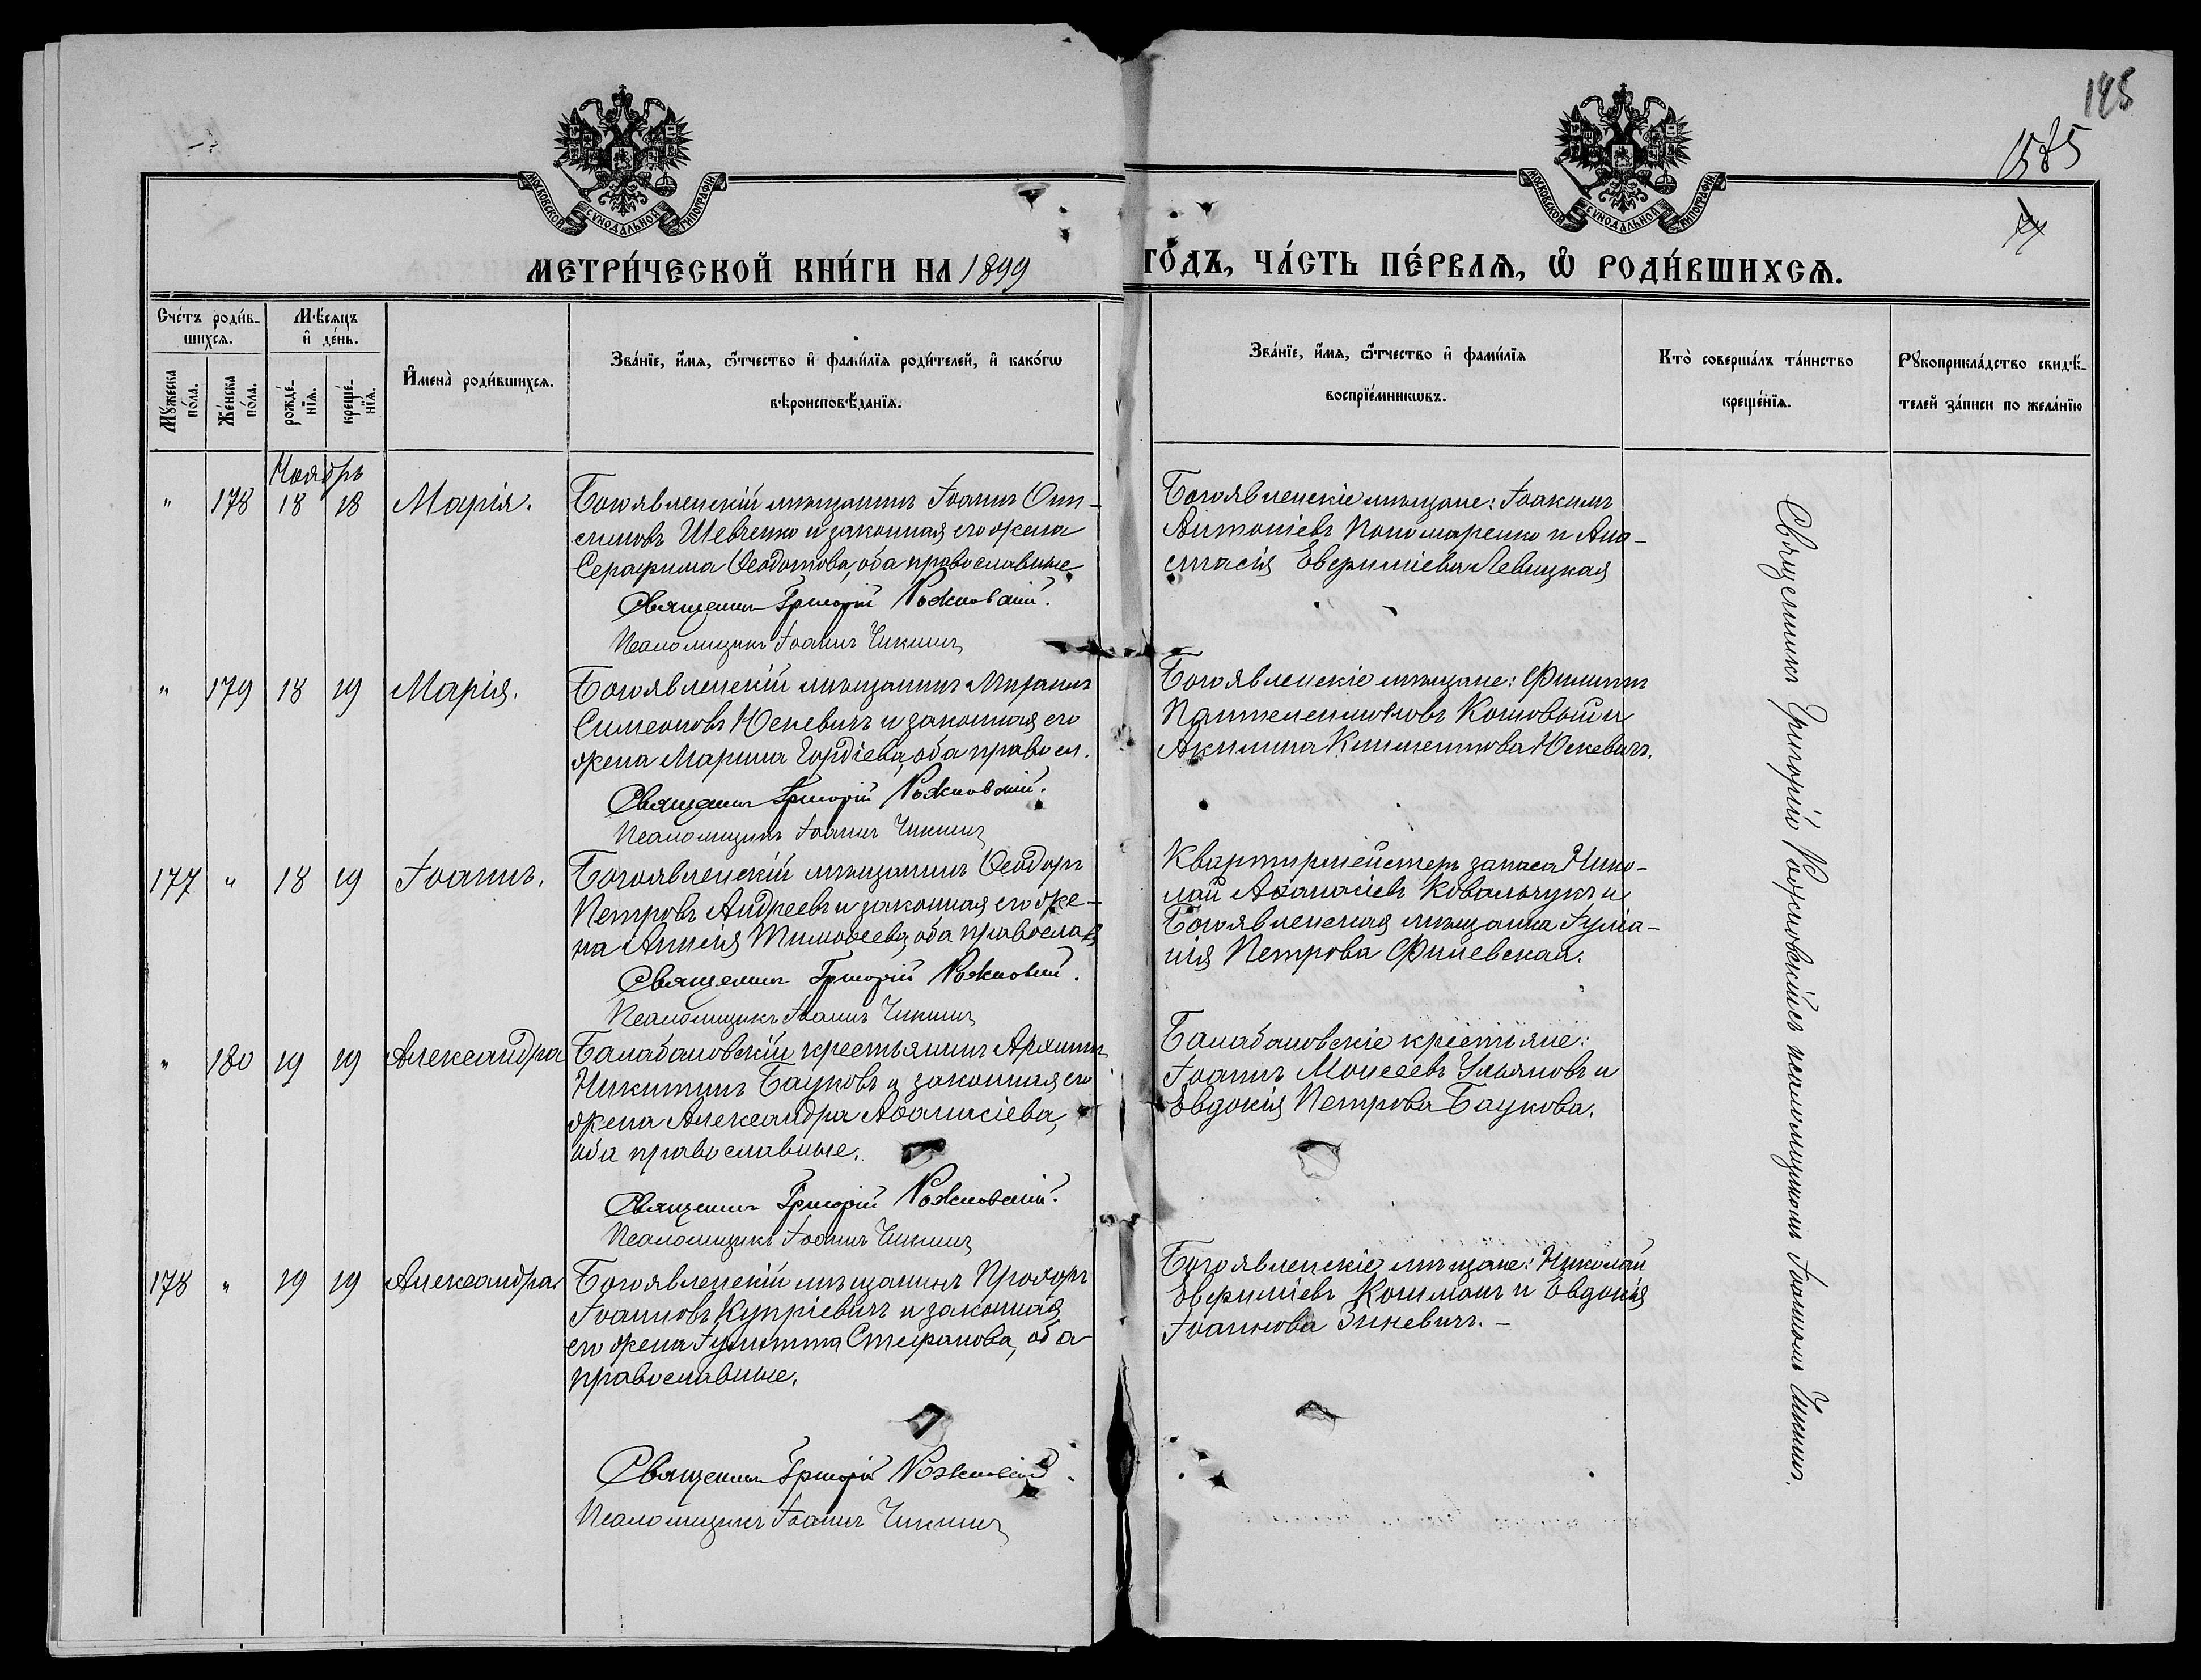 185
1585
МОСКОВСКОЙ СѴНОДАЛЬНОЙ ТИПОГРАФІИ
МОСКОВСКОЙ СѴНОДАЛЬНОЙ ТИПОГРАФІИ
МЕТРИ́ЧЕСКОЙ КНИ́ГИ НА 1899 ГО́ДЪ, ЧА́СТЬ ПЕ́РВАѦ, Ѽ РОДИ́ВШИХСѦ.
Сче́тъ роди́в-
шихсѧ.
Мꙋ́жеска по́ла.
Же́нска по́ла.
Мѣ́сѧцъ
и҆ де́нь.
рожде́-
нїѧ.
креще́-
нїѧ.
И҆мена̀ роди́вшихсѧ.
Зва́нїе, и҆́мѧ, ѻ҆́тчество и҆ фами́лїѧ роди́телей, и҆ како́гѡ
вѣроисповѣ́данїѧ.
Зва́нїе, и҆́мѧ, ѻ҆́тчество и҆ фами́лїѧ
воспрїе́мникѡвъ.
Кто̀ соверша́лъ та́инство
креще́нїѧ.
Рꙋкоприкла́дство свидѣ́-
телей за́писи по жела́нїю
Ноябрь
" 178 18 18 Марія.
Богоявленскій мѣщанинъ Іоаннъ Они-
симовъ Шевченко и законная его жена
Серафима Ѳеодотова, оба православные
Священникъ Григорій Рожновскій.
Псаломщикъ Іоаннъ Чикинъ
Богоявленскіе мѣщане: Іоакимъ
Антоніевъ Пономаренко и Ана-
стасія Евфиміева Левицкая
" 179 18 19 Марія.
Богоявленскій мѣщанинъ Михаилъ
Симеоновъ Юскевичъ и законная его
жена Марина Гордіева, оба правосл.
Священникъ Григорій Рожновскій.
Псаломщикъ Іоаннъ Чикинъ
Богоявленскіе мѣщане: Филиппъ
Пантелеимоновъ Кошовый и
Акилина Климентова Юскевичъ.
177 " 18 19 Іоаннъ.
Богоявленскій мѣщанинъ Ѳеодоръ
Петровъ Андреевъ и законная его же-
на Аннія Тимоѳеева, оба православ.
Священникъ Григорій Рожновскій.
Псаломщикъ Іоаннъ Чикинъ
Квартирмейстеръ запаса Нико-
лай Аѳанасіевъ Ковальчукъ и
Богоявленская мѣщанка Іулiа-
нія Петрова Филевская.
" 180 19 19 Александра
Балабановскій крестьянинъ Архипъ
Никитинъ Бауковъ и законная его
жена Александра Аѳанасіева,
оба православные.
Священникъ Григорій Рожновскій.
Псаломщикъ Іоаннъ Чикинъ
Балабановскіе крестьяне:
Іоаннъ Моисеевъ Ульяновъ и
Евдокія Петрова Баукова.
178 " 19 19 Александръ
Богоявленскій мѣщанинъ Прохоръ
Іоанновъ Купріевичъ и законная
его жена Іулитта Стефанова, оба
православные.
Священникъ Григорій Рожновскій.
Псаломщикъ Іоаннъ Чикинъ
Богоявленскіе мѣщане: Николай
Евфиміевъ Кошманъ и Евдокія
Іоаннова Зинкевичъ. –
Священникъ Григорій Рожновскій съ псаломщикомъ Іоанномъ Чикинъ.